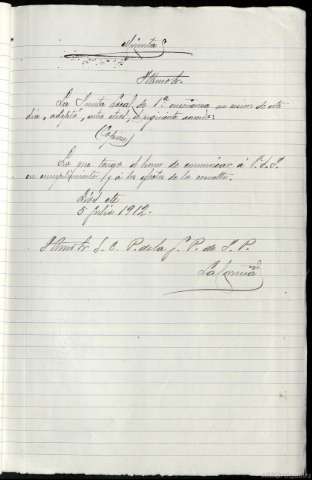 Minuta
Iltmo Sr.
La Junta local de 1ª enseñanza en sesion de este
día, adoptó, entre otros, el siguiente acuerdo:
(Copiese)
Lo que tengo el honor de comunicar á V. S. I.
en cumplimiento y á los efectos de la
Dios etc
5 Julio 1912.
Iltmo Sr. G. C. P. de la J. P. de I. P.
La Coruña